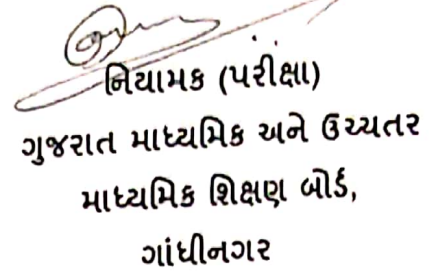 નિયામક (પરીક્ષા)
ગુજરાત માધ્યમિક અને ઉચ્ચતર
માધ્યમિક શિક્ષણ બોર્ડ,
ગાંધીનગર